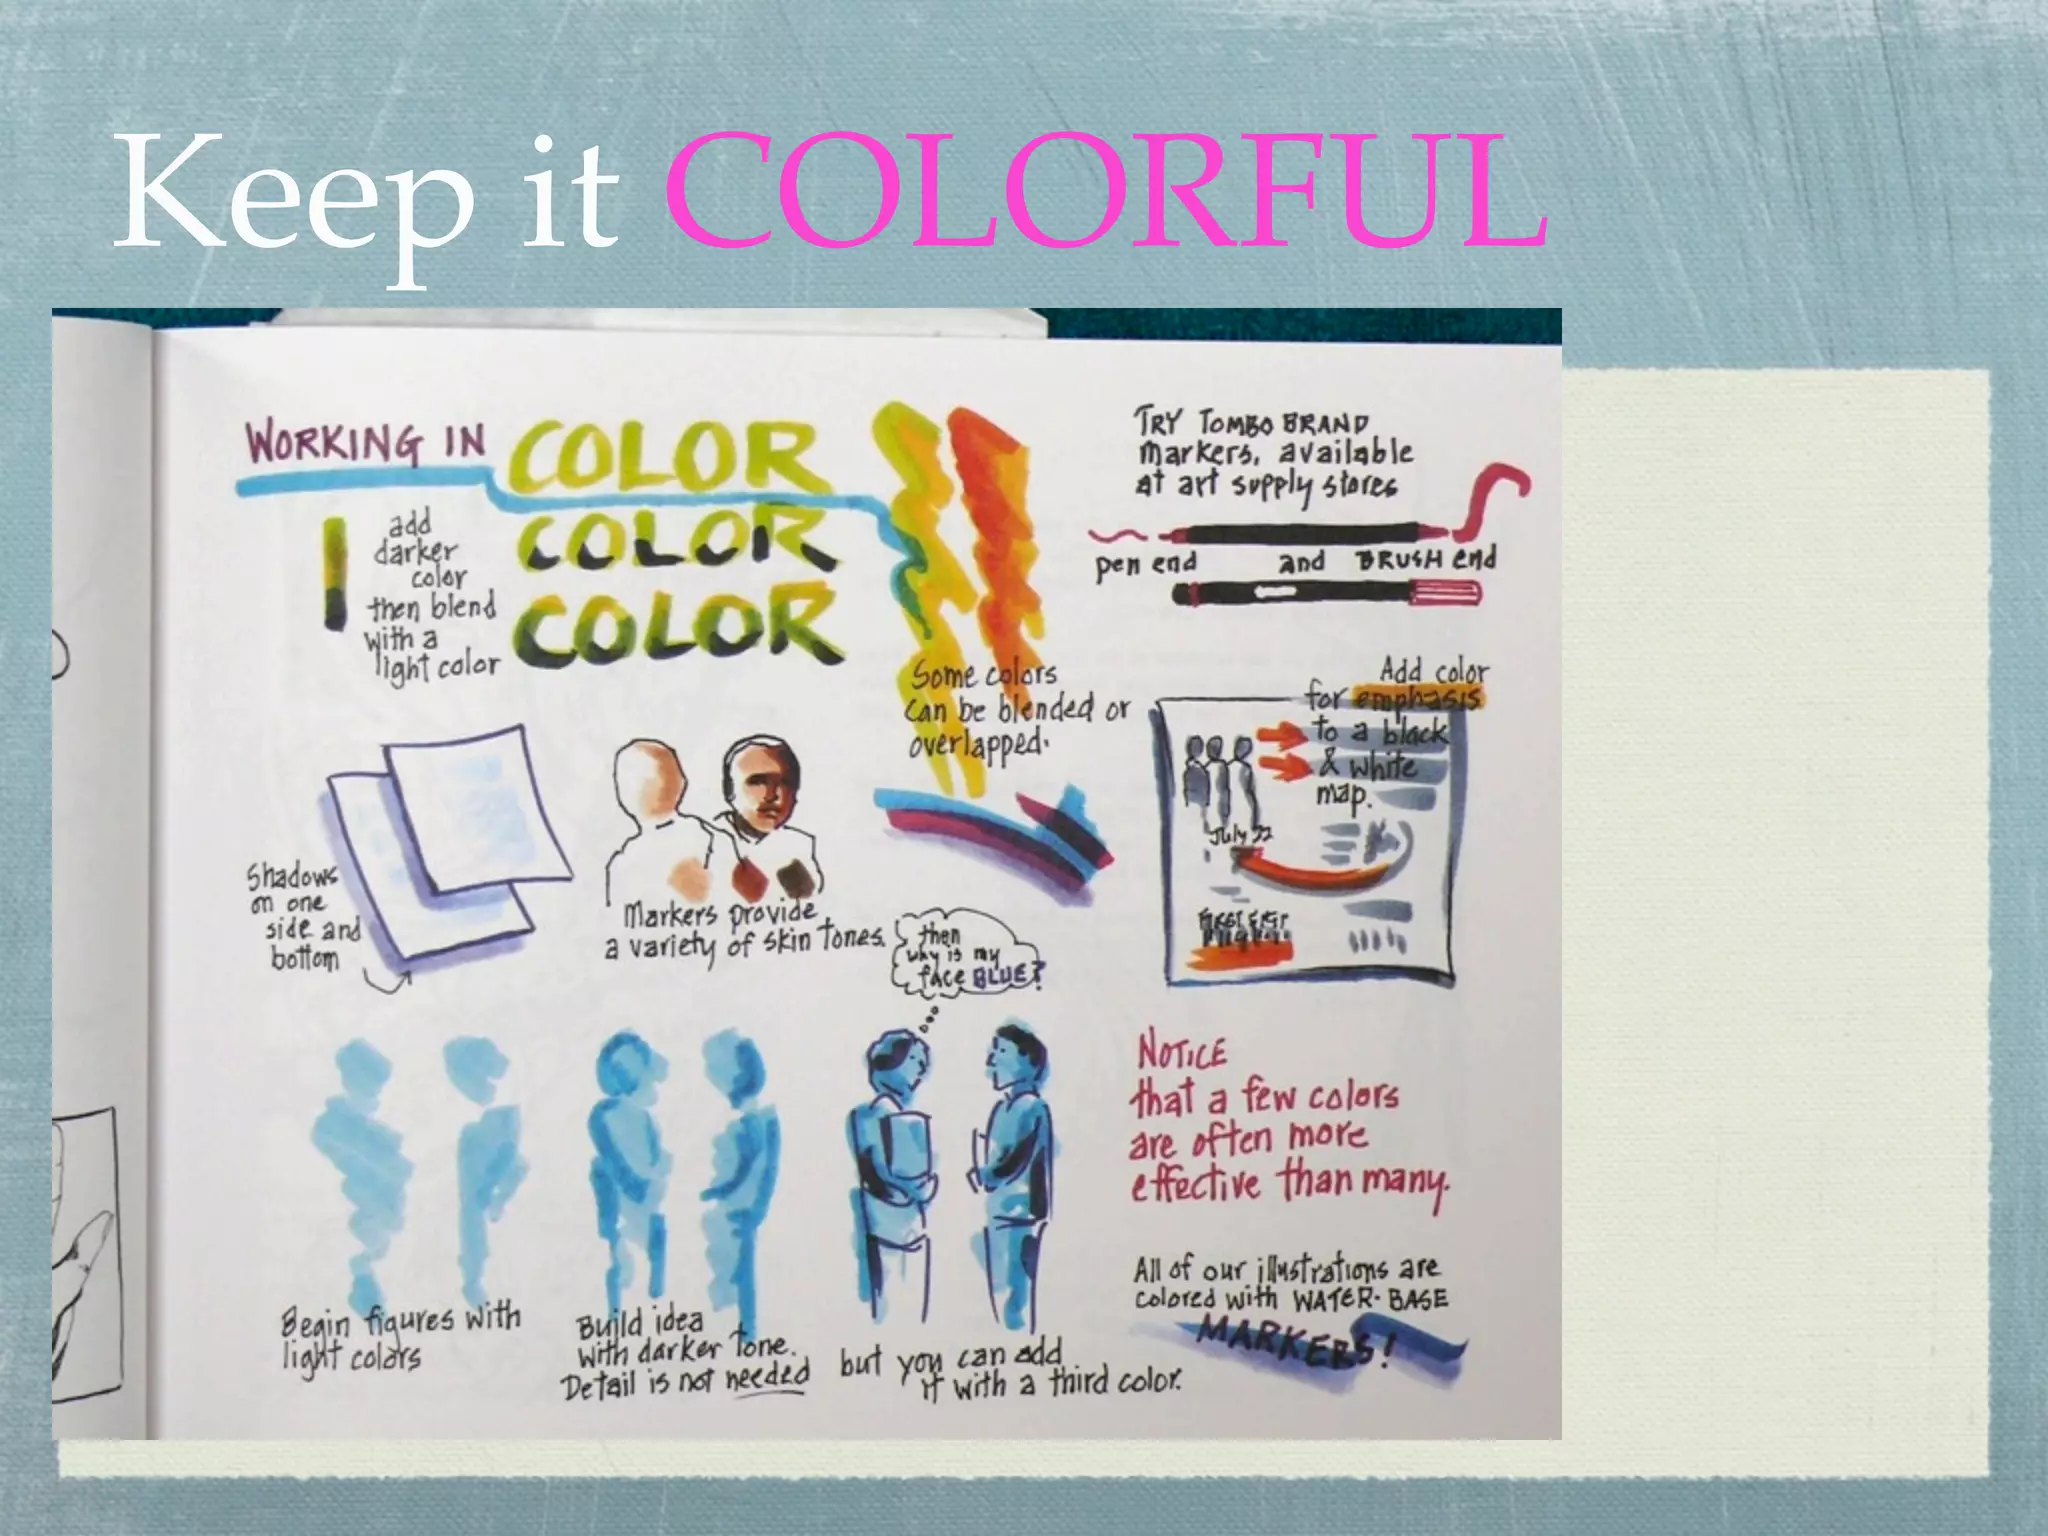 Keep it COLORFUL
WORKING IN COLOR
COLOR
COLOR
add
darker
color
then blend
with a
light color
Some colors
can be blended or
overlapped.
TRY TOMBO BRAND
markers, available
at art supply stores
pen end and BRUSH end
Add color
for emphasis
to a black
& white
map.
July 22
Shadows
on one
side and
bottom
Markers provide
a variety of skin tones.
then
why is my
face BLUE?
Begin figures with
light colors
Build idea
with darker tone.
Detail is not needed
but you can add
it with a third color.
NOTICE
that a few colors
are often more
effective than many.
All of our illustrations are
colored with WATER-BASE
MARKERS!